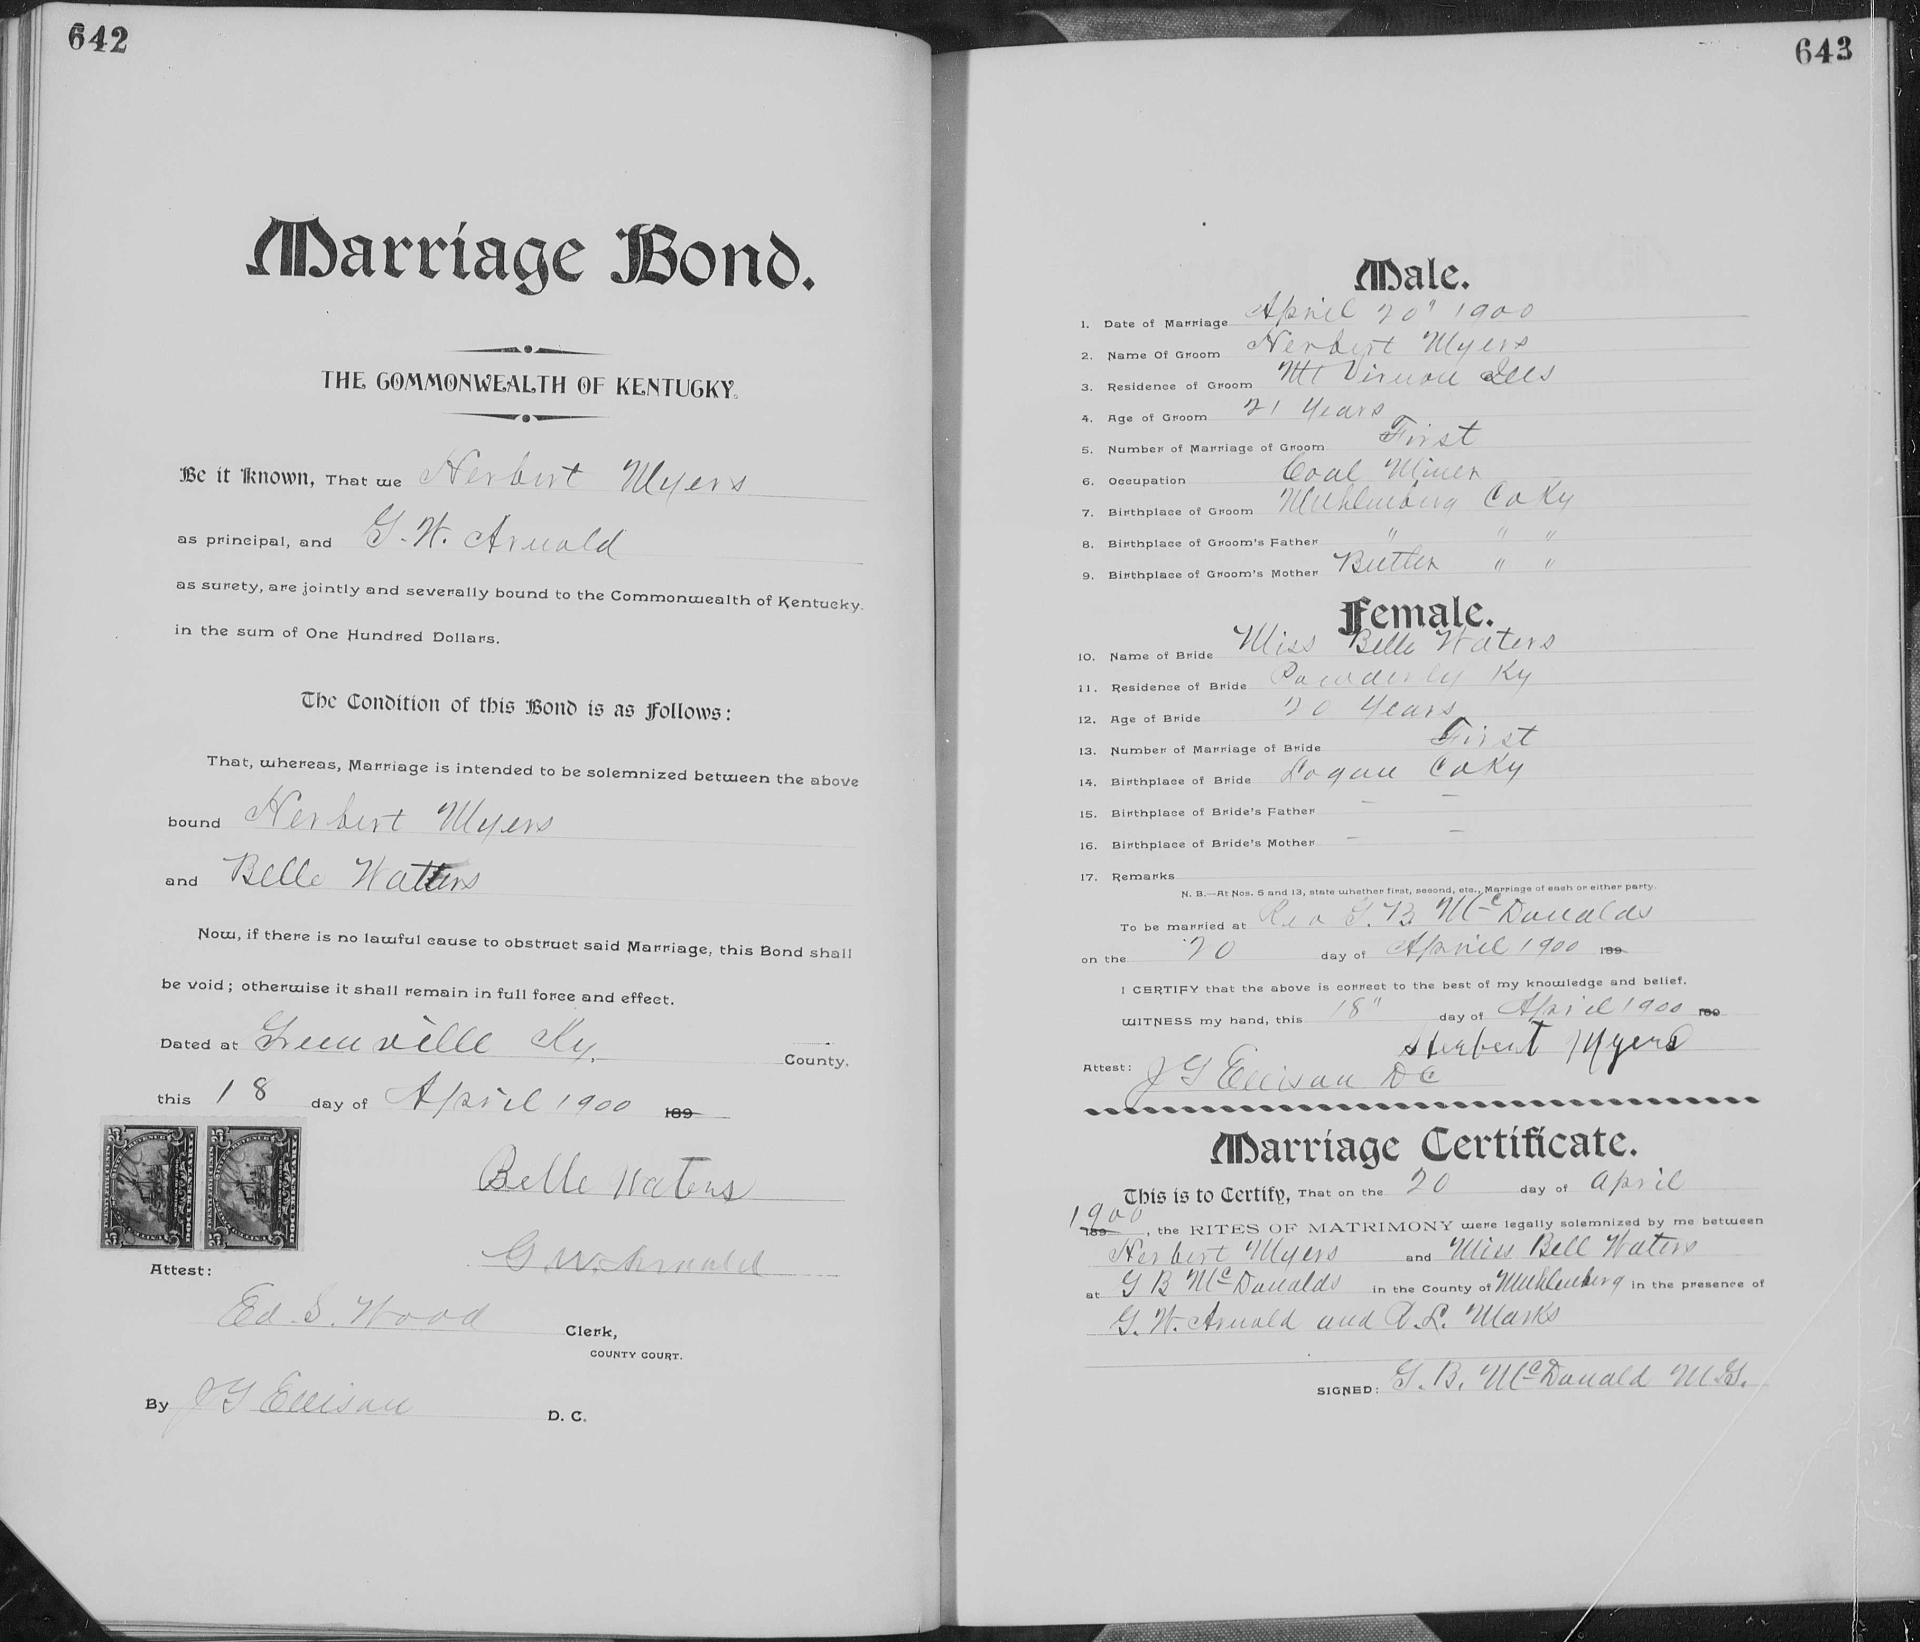 642
Marriage Bond.
THE COMMONWEALTH OF KENTUCKY.
Be it Known, That we Herbert Myers
as principal, and G. W. Arnold
as surety, are jointly and severally bound to the Commonwealth of Kentucky.
in the sum of One Hundred Dollars.
The Condition of this Bond is as Follows:
That, whereas, Marriage is intended to be solemnized between the above
bound Herbert Myers
and Belle Waters
Now, if there is no lawful cause to obstruct said Marriage, this Bond shall
be void; otherwise it shall remain in full force and effect.
Dated at Greenville Ky. County.
this 18 day of April 1900 189
Belle Waters
G. W. Arnold
Attest:
Ed. S. Wood Clerk,
COUNTY COURT.
By J G Ellison D. C.
643
Male.
1. Date of Marriage April 20" 1900
2. Name Of Groom Herbert Myers
3. Residence of Groom Mt Vernon Ills
4. Age of Groom 21 Years
5. Number of Marriage of Groom First
6. Occupation Coal Miner
7. Birthplace of Groom Muhlenberg Co Ky
8. Birthplace of Groom's Father " " "
9. Birthplace of Groom's Mother Butler " "
Female.
10. Name of Bride Miss Belle Waters
11. Residence of Bride Powderly Ky
12. Age of Bride 20 Years
13. Number of Marriage of Bride First
14. Birthplace of Bride Logan Co Ky
15. Birthplace of Bride's Father - -
16. Birthplace of Bride's Mother - -
17. Remarks
N. B.—At Nos. 5 and 13, state whether first, second, etc., Marriage of each or either party.
To be married at Rev G. B McDonalds
on the 20 day of April 1900 189
I CERTIFY that the above is correct to the best of my knowledge and belief.
WITNESS my hand, this 18" day of April 1900 189
Herbert Myers
Attest: J G Ellison D C
Marriage Certificate.
This is to Certify, That on the 20 day of April
1900
189 , the RITES OF MATRIMONY were legally solemnized by me between
Herbert Myers and Miss Bell Waters
at G B McDonalds in the County of Muhlenberg in the presence of
G. W. Arnold and A. L. Marks
SIGNED: G. B. McDonald M.G.